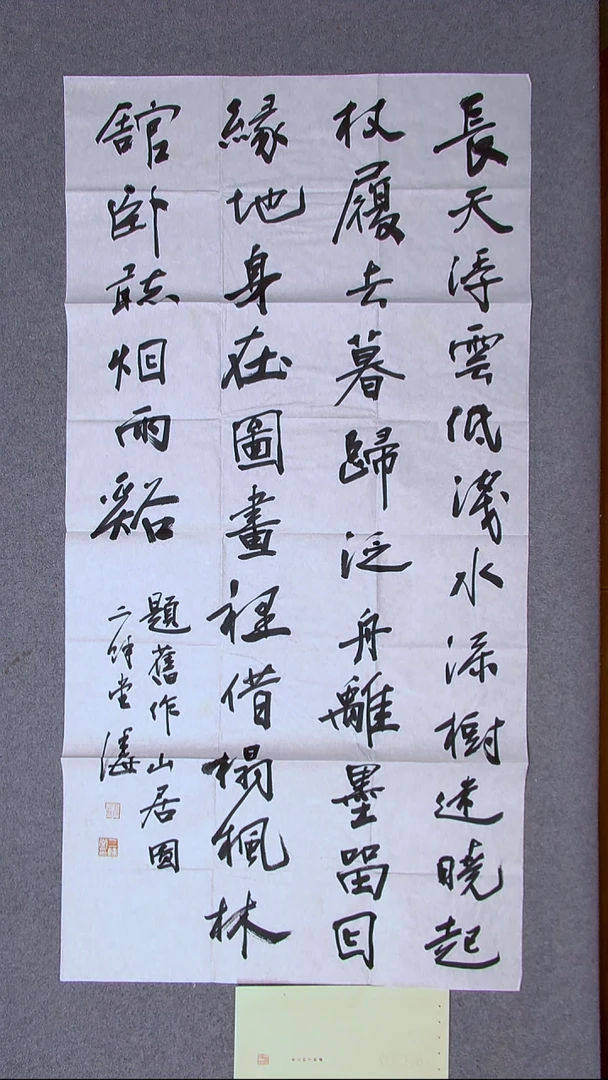 長天浮雲低淺水深樹遠曉起
杖履去暮歸泛舟離墨留囙
緣地身在圖畫裡借榻楓林
舘卧聽烟雨谿
題舊作山居圖
二堂